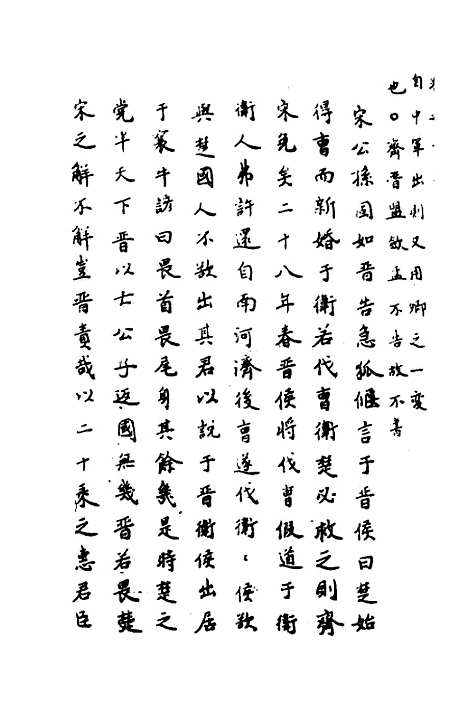 自中軍出則又用卿之一變
也○齊晉盟斂盂不告故不書
宋公孫固如晉告急狐偃言于晉侯曰楚始
得曹而新婚于衛若伐曹衛楚必救之則齊
宋免矣二十八年春晉侯将伐曹假道于衛
衛人弗許還自南河濟後曹遂伐衛〻侯欲
與楚國人不欲出其君以說于晉衛侯出居
于襄牛諺曰畏首畏尾身其餘幾是時楚之
党半天下晉以亡公子返國無幾晉若畏楚
宋之解不解豈晉責哉以二十乘之惠君臣